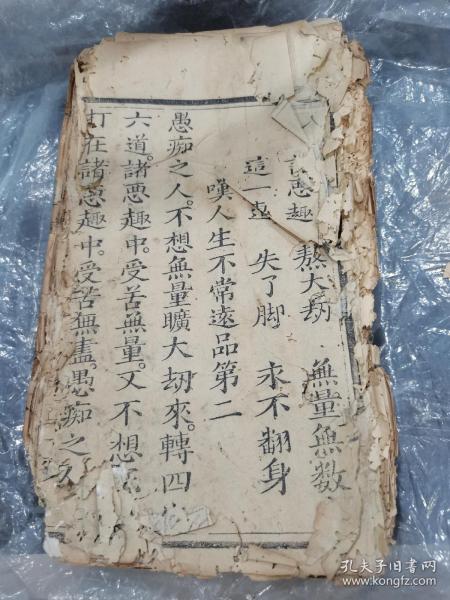 諸惡趣 熬大劫 無量無数
這一𢌞 失了脚 永不翻身
嘆人生不常遠品第二
愚痴之人。不想無量曠大劫來。轉四
六道。諸惡趣中。受苦無量。又不想
打在諸惡趣中。受苦無盡。愚痴之
孔夫子旧书网
www.kongfz.com